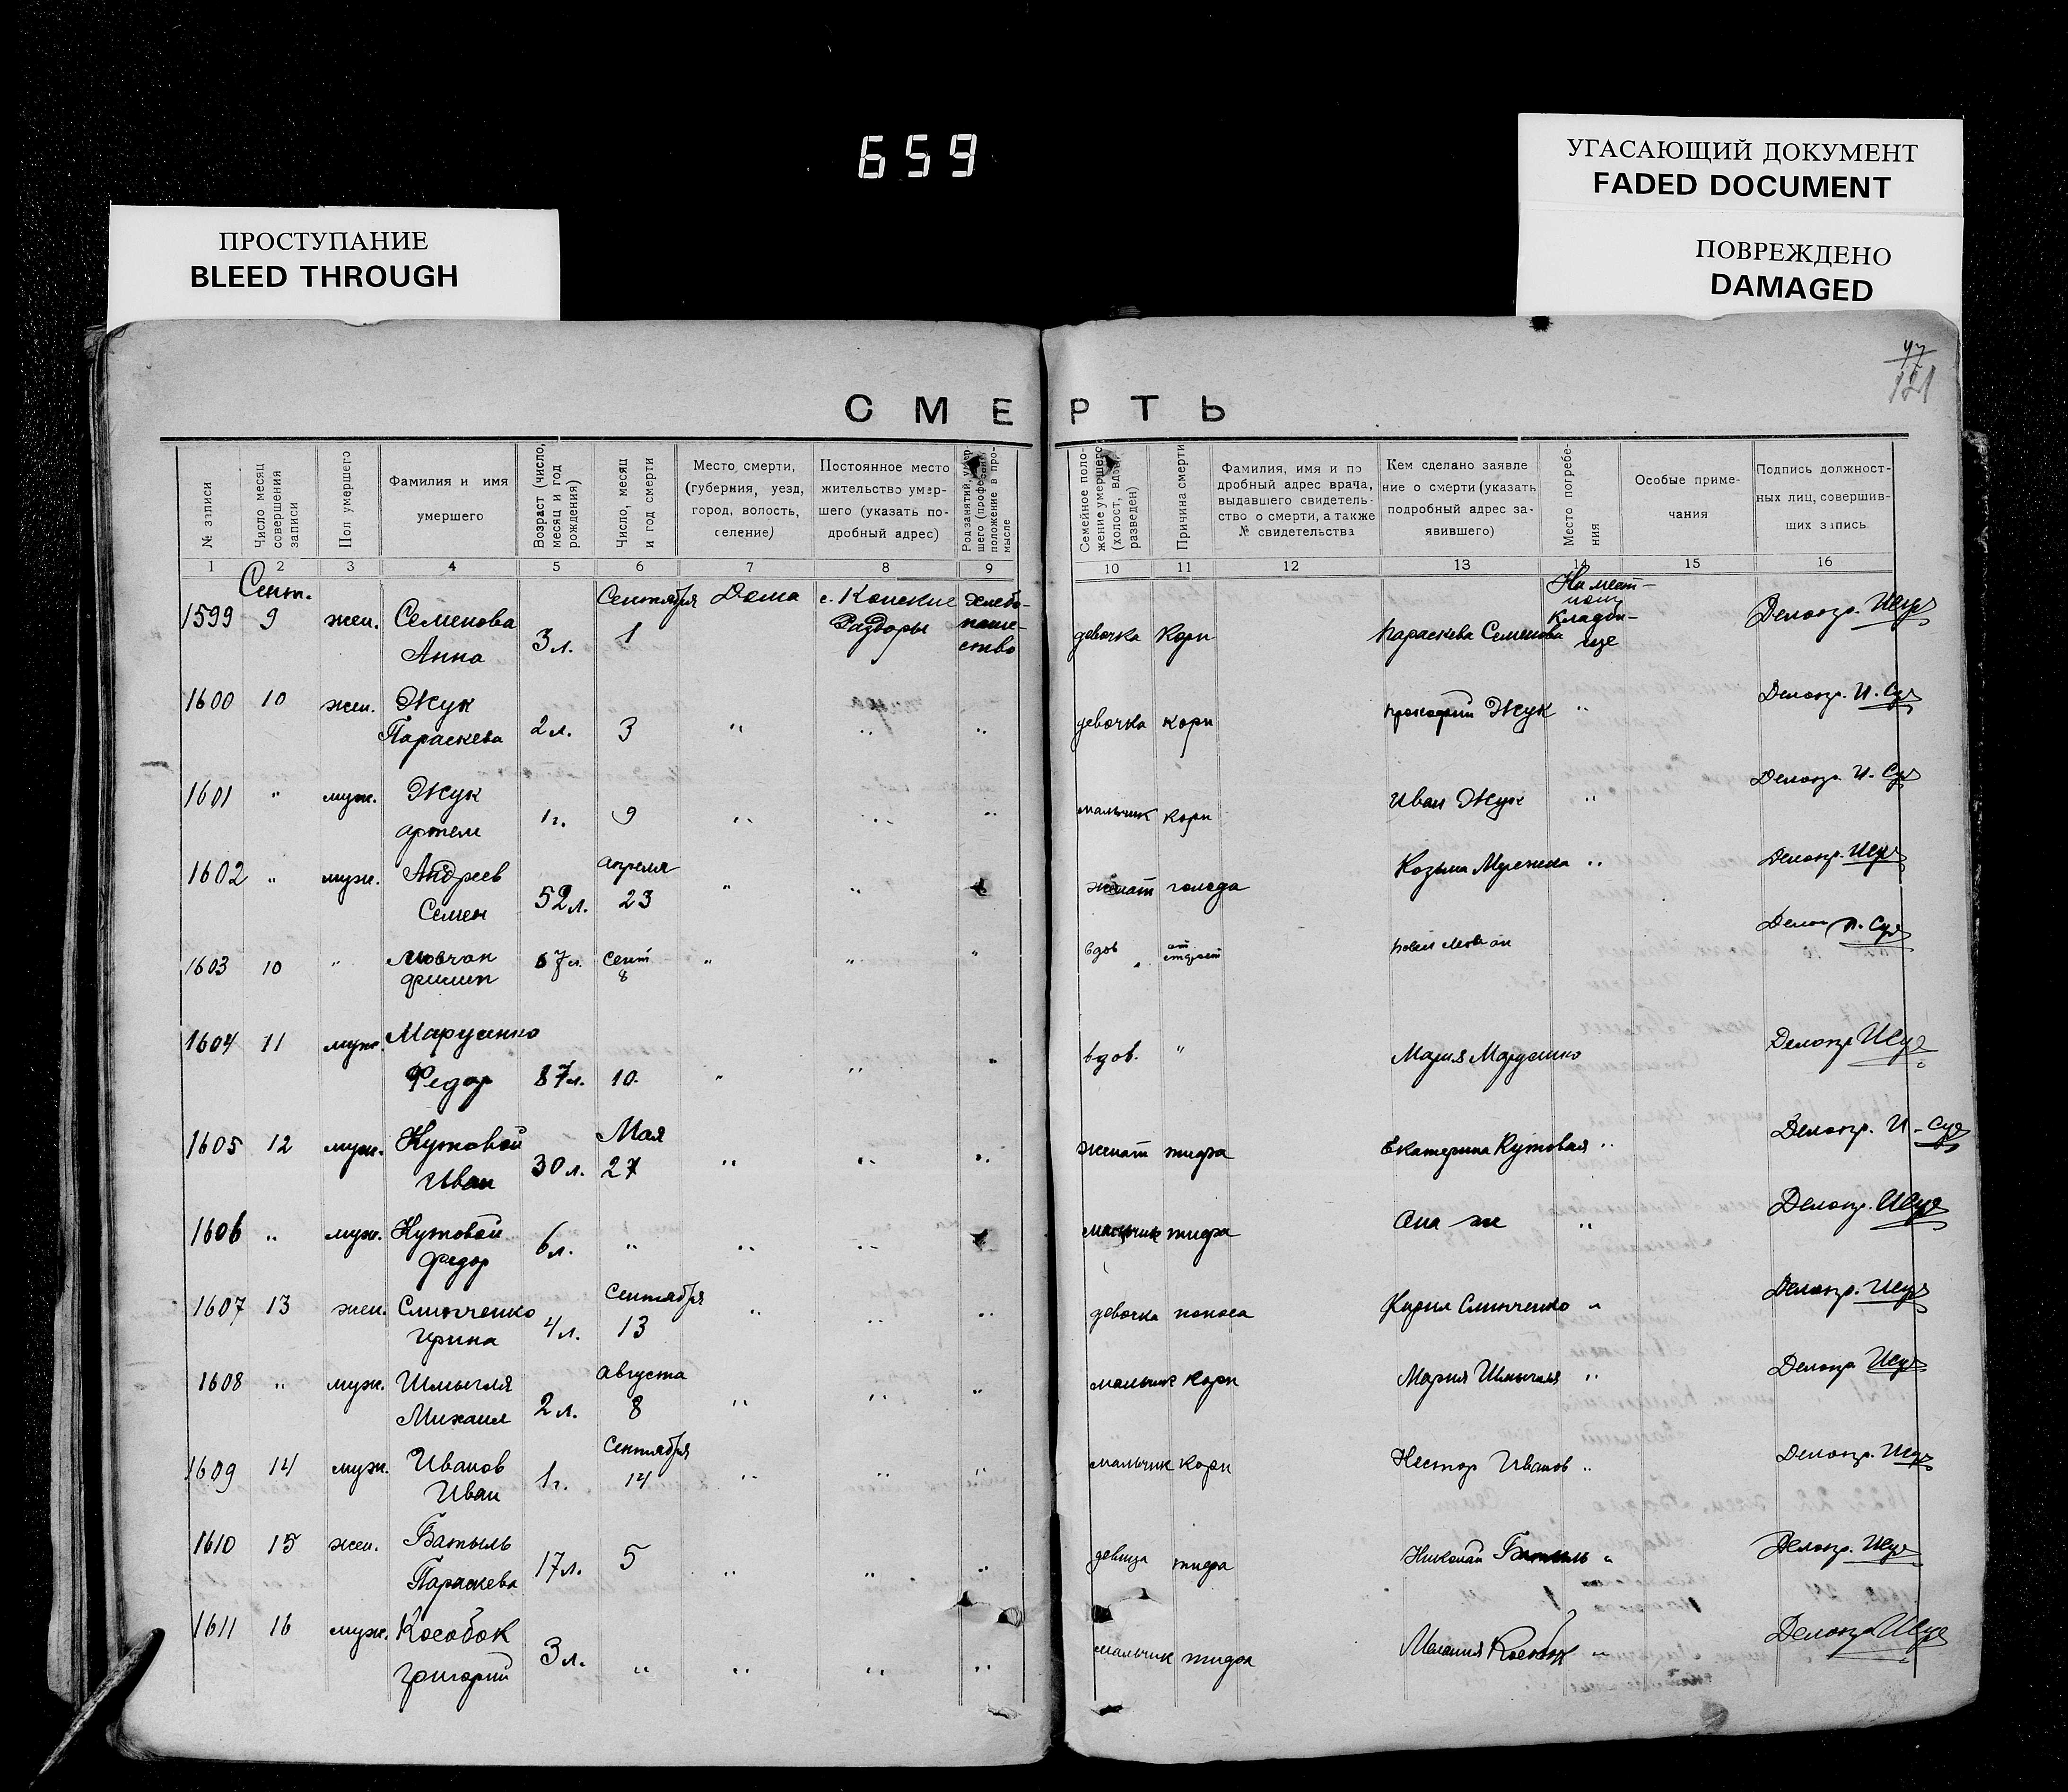 659
УГАСАЮЩИЙ ДОКУМЕНТ
FADED DOCUMENT
ПРОСТУПАНИЕ
BLEED THROUGH
ПОВРЕЖДЕНО
DAMAGED
47
121
СМЕРТЬ
№ записи
Число месяц совершения записи
Пол умершего
Фамилия и имя умершего
Возраст (число, месяц и год рождения)
Число, месяц и год смерти
Место смерти, (губерния, уезд, город, волость, селение)
Постоянное место жительство умершего (указать подробный адрес)
Род занятий, умершего (профессия), положение в промысле
Семейное положение умершего (холост, вдов, разведен)
Причина смерти
Фамилия, имя и подробный адрес врача, выдавшего свидетельство о смерти, а также № свидетельства
Кем сделано заявление о смерти (указать подробный адрес заявившего)
Место погребения
Особые примечания
Подпись должностных лиц, совершивших запись
1 2 3 4 5 6 7 8 9 10 11 12 13 14 15 16
Сент. Сентября Дома с. Конские Раздоры Хлебопашество На местном кладбище
1599 9 жен. Семенова Анна 3 л. 1 девочка Кори Параскева Семенова Делопр.
1600 10 жен. Жук Параскева 2 л. 3 " " " девочка кори Прокофий Жук " Делопр.
1601 " муж. Жук Артем 1 г. 9 " " " мальчик кори Иван Жук " Делопр.
1602 " муж. Андреев Семен 52 л. апреля 23 " " женат голода Козьма " Делопр.
1603 10 " Мовчан Филип 67 л. сент 8 " " " вдов от старост Делоп
1604 11 муж. Марусенко Федор 87 л. 10. " " " вдов. " Мария Марусенко Делопр
1605 12 муж. Кутовой Иван 30 л. Мая 27 " " " женат тифа Екатерина Кутовая " Делопр.
1606 " муж. Кутовой Федор 6 л. " " " мальчик тифа Она же " Делопр.
1607 13 жен. Слинченко Ирина 4 л. Сентября 13 " " " девочка поноса Кирил Слинченко " Делопр.
1608 " муж. Шмыгля Михаил 2 л. августа 8 " " " мальчик кори Мария Шмыгля " Делопр
1609 14 муж. Иванов Иван 1 г. Сентября 14 " " " мальчик кори Нестор Иванов " Делопр.
1610 15 жен. Батыль Параскева 17 л. 5 " " " девица тифа Николай Батыль " Делопр.
1611 16 муж. Кособок Григорий 3 л. " " " " мальчик тифа Мелания Кособок " Делопр